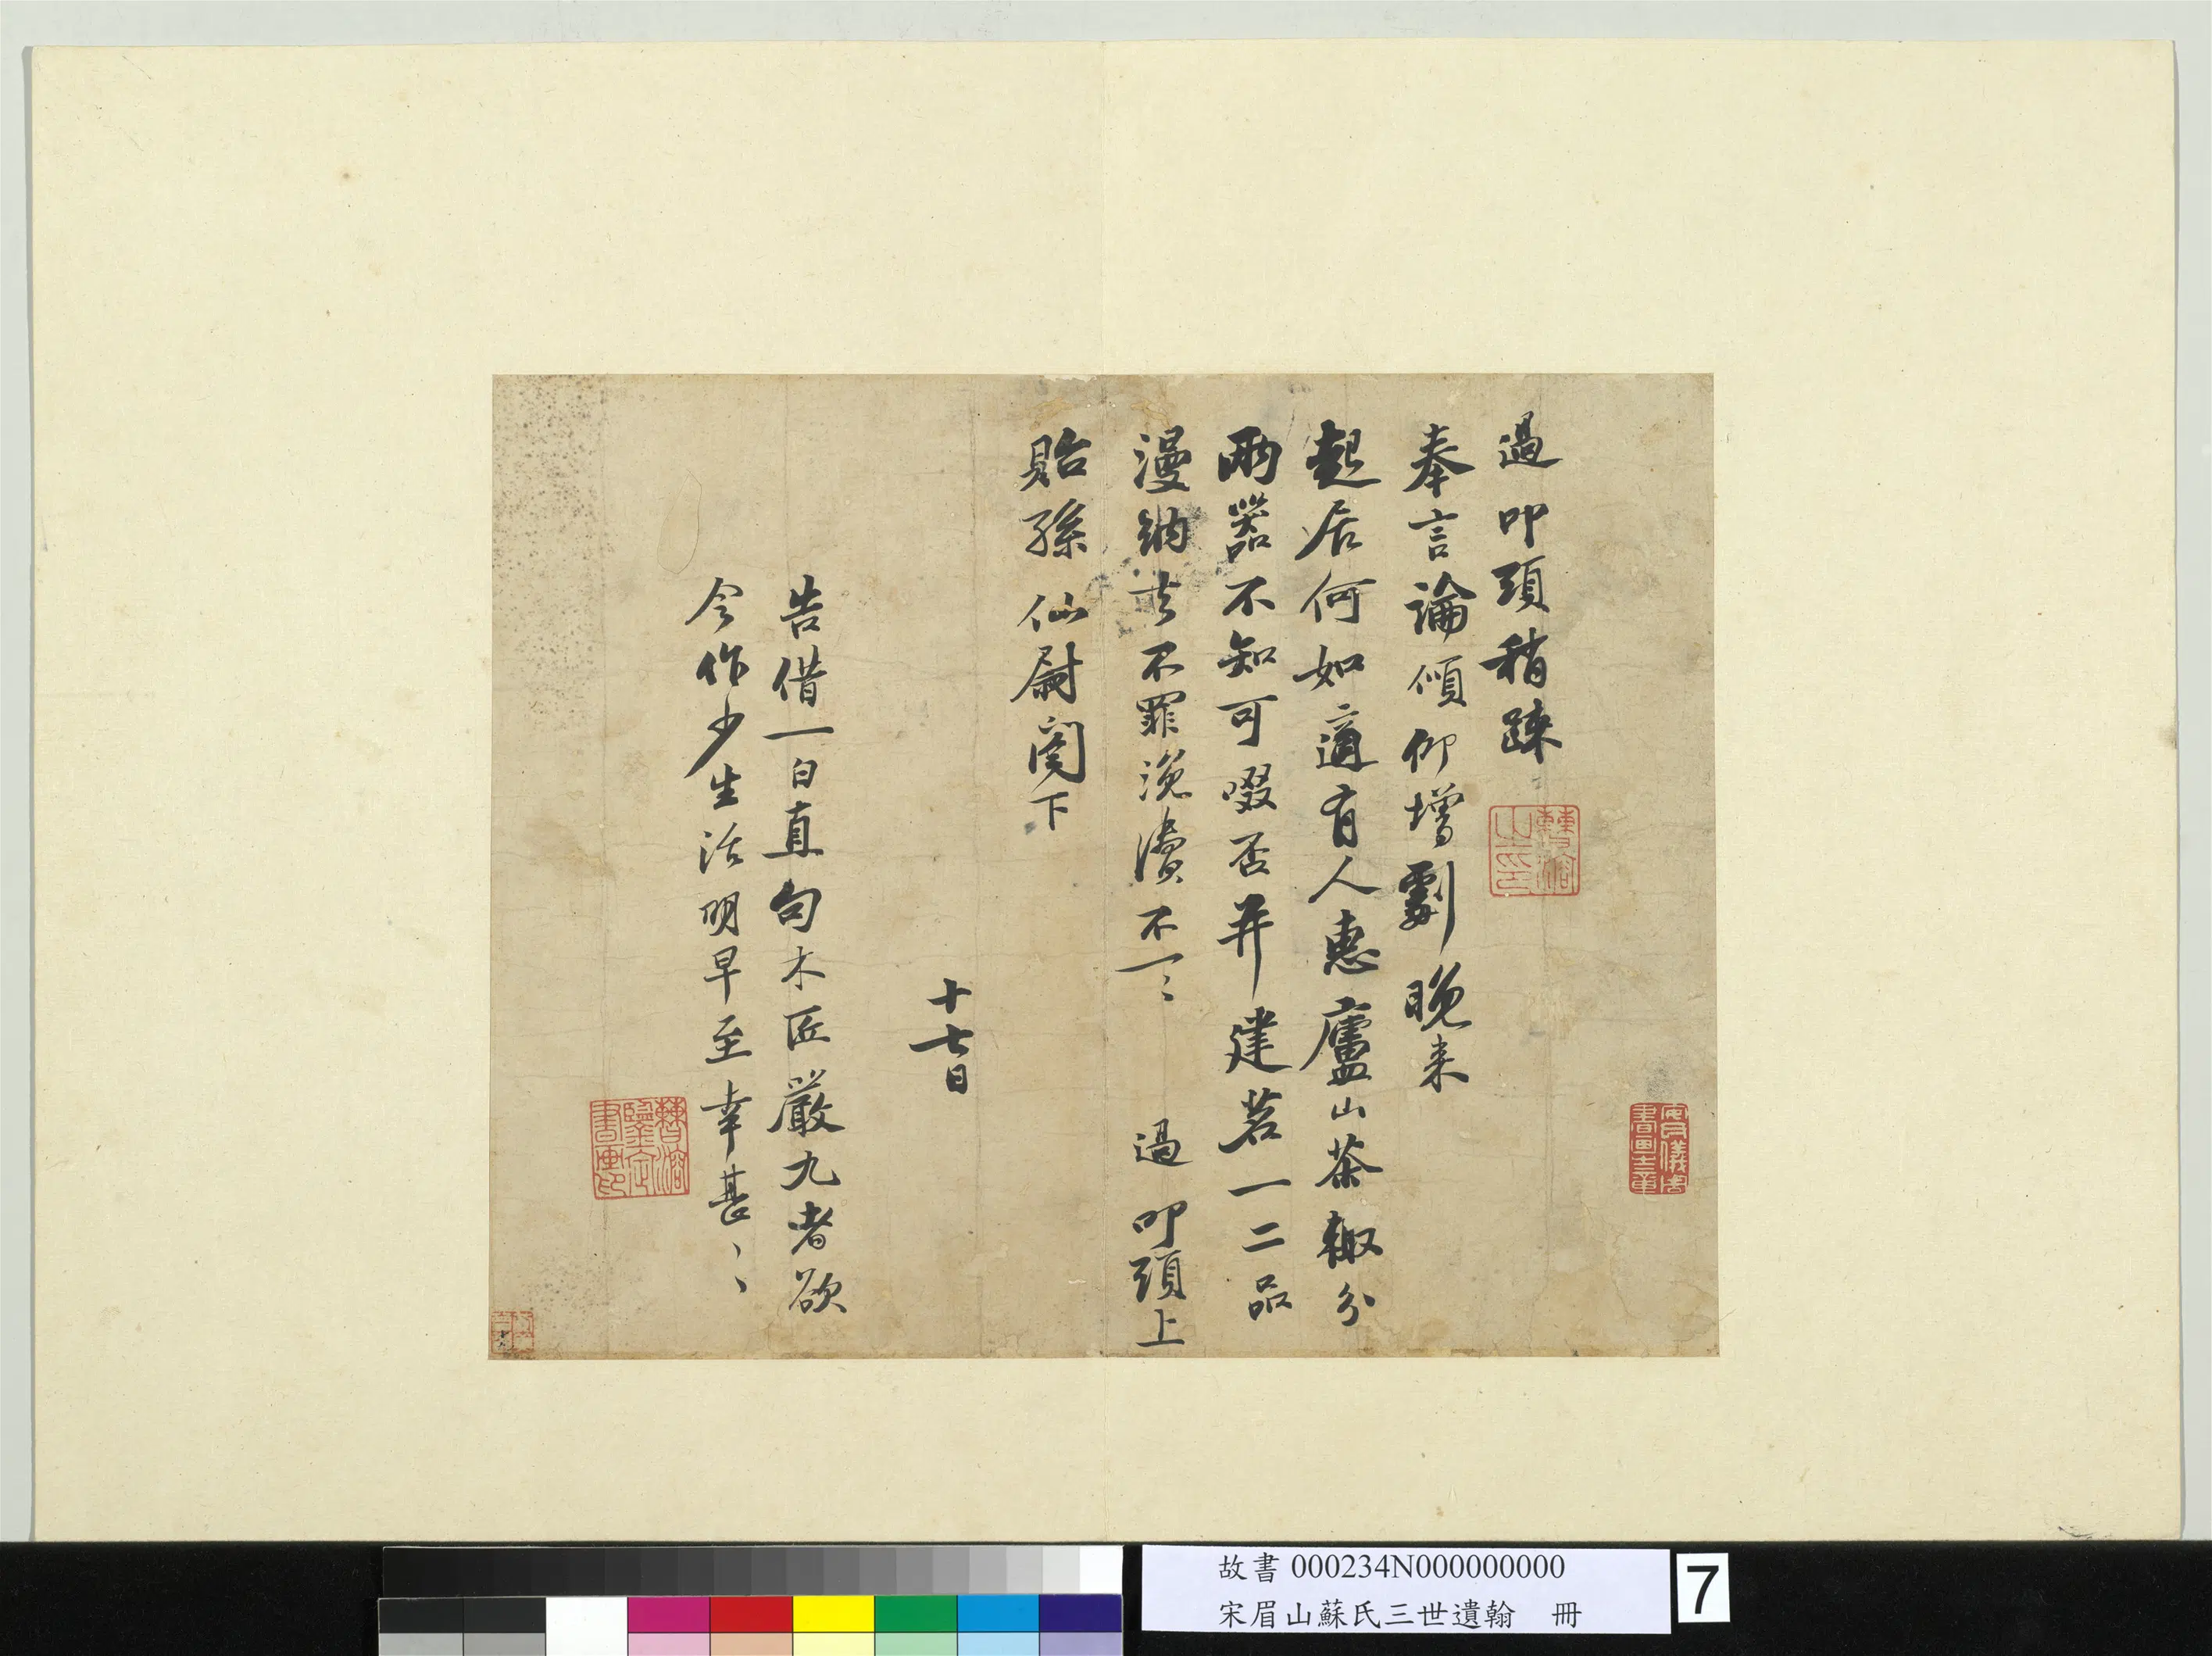 過叩頭稍疎
奉言論傾仰增劇晚来
起居何如適有人惠廬山茶輙分
兩器不知可啜否并建茗一二品
漫納去不罪浼瀆不一〻 過叩頭上
貽孫仙尉閤下
十七日
告借一白直句木匠嚴九者欲
令作少生活明早至幸甚〻〻
安儀周書畫之章
故書 000234N000000000
宋眉山蘇氏三世遺翰 冊
7